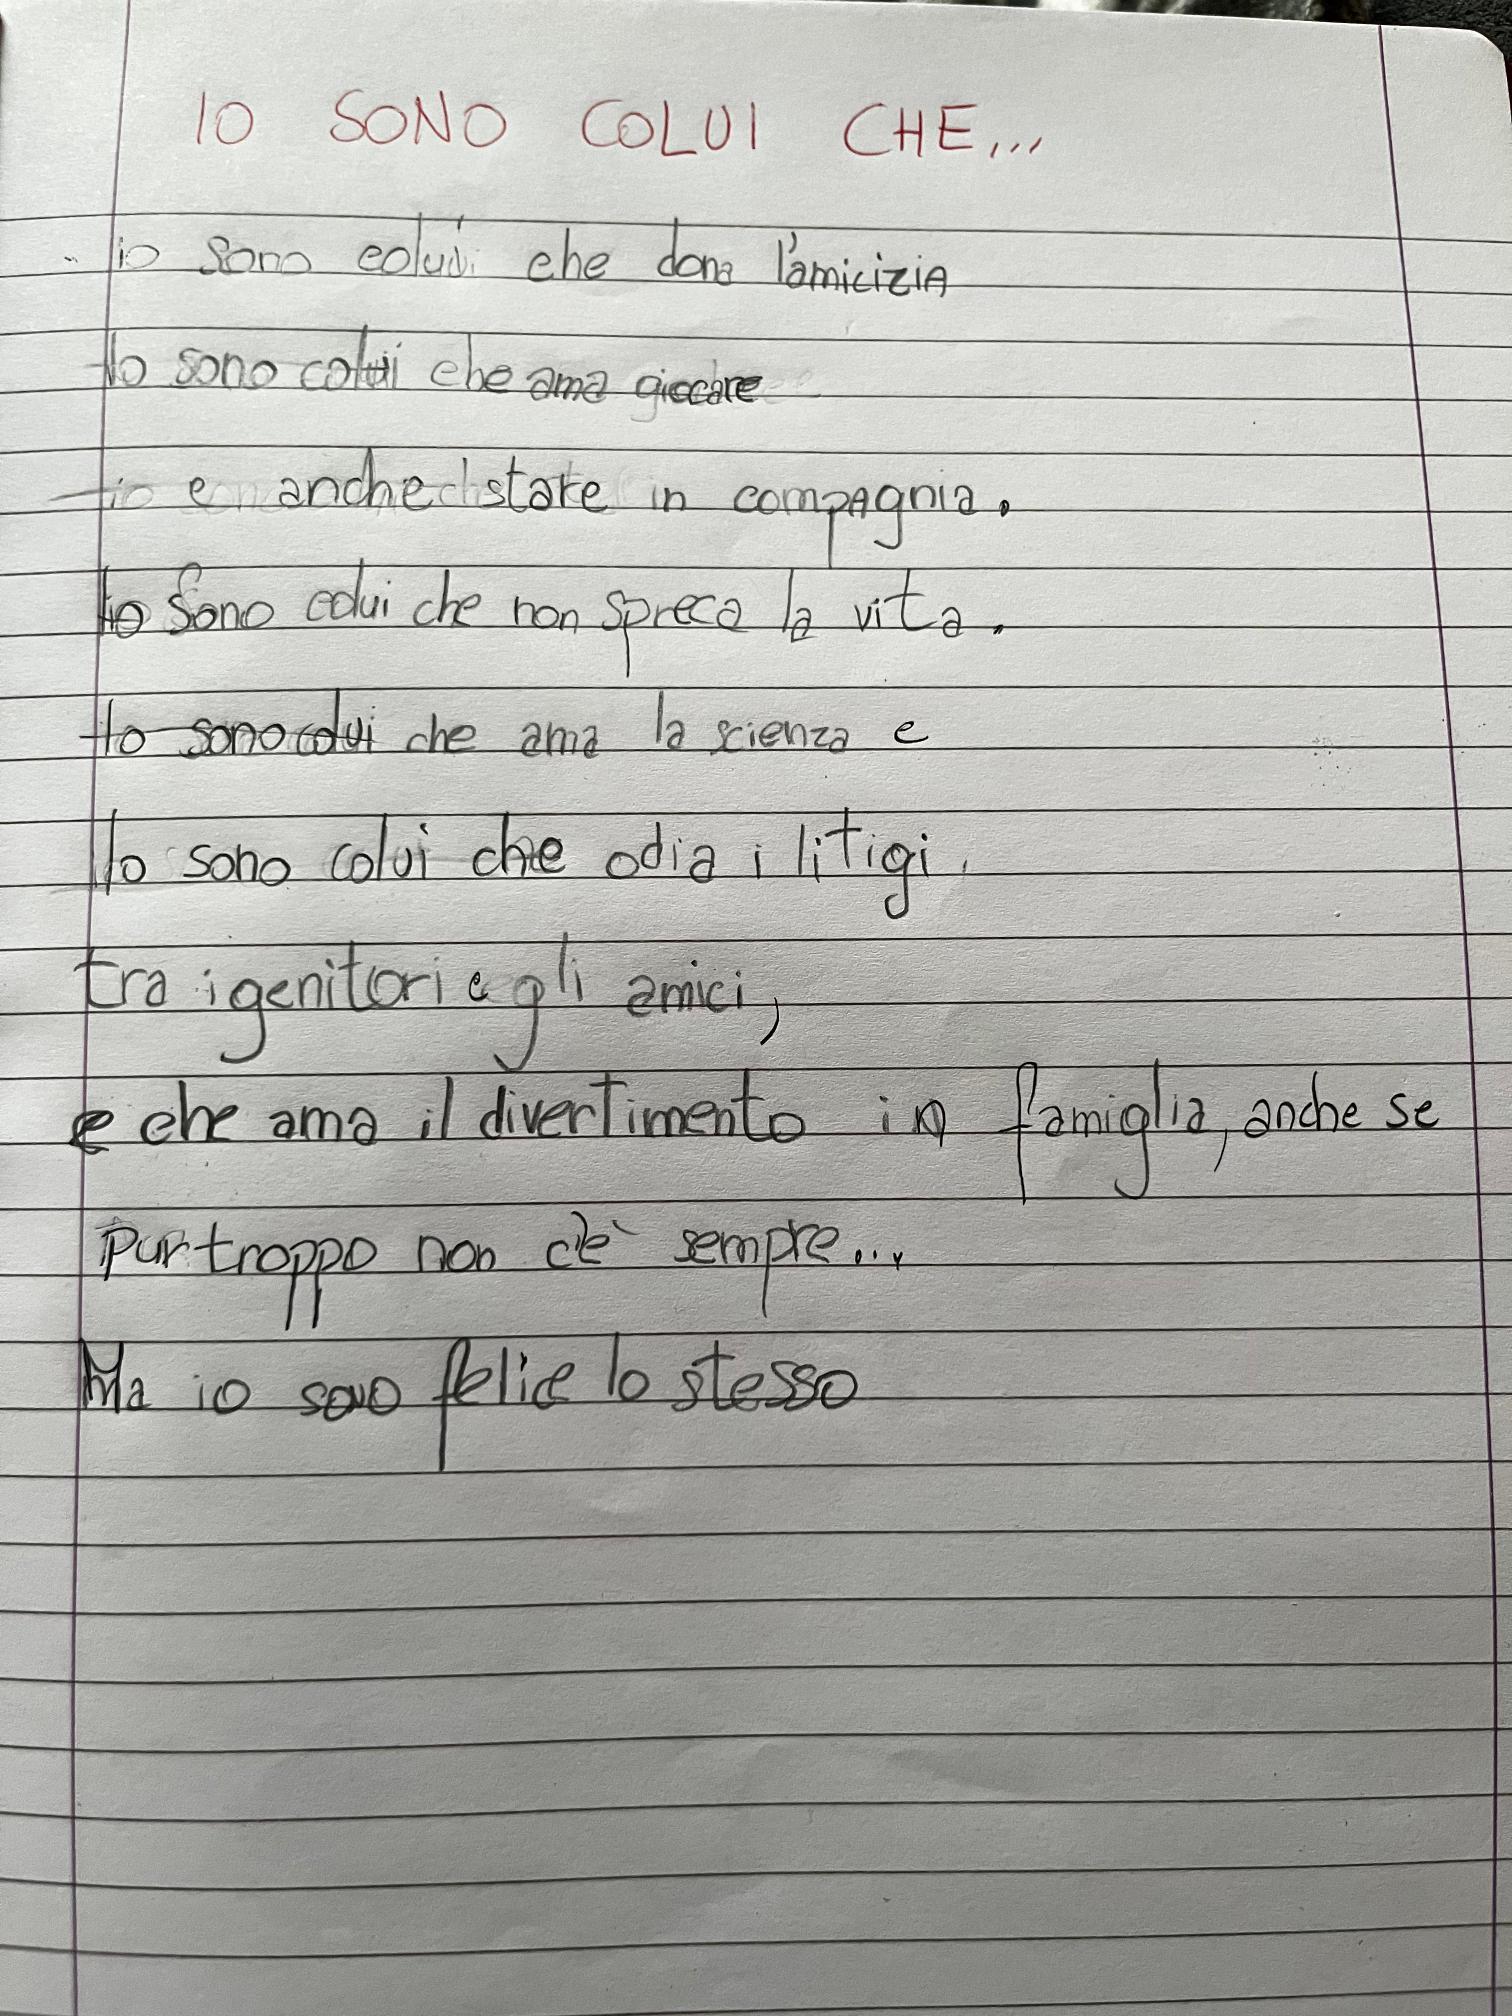 IO SONO COLUI CHE...
io sono colui che dona l'amicizia
Io sono colui che ama giocare
e anche stare in compagnia.
Io sono colui che non spreca la vita.
Io sono colui che ama la scienza e
Io sono colui che odia i litigi
tra i genitori e gli amici,
e che ama il divertimento in famiglia, anche se
purtroppo non c'è sempre...
Ma io sono felice lo stesso